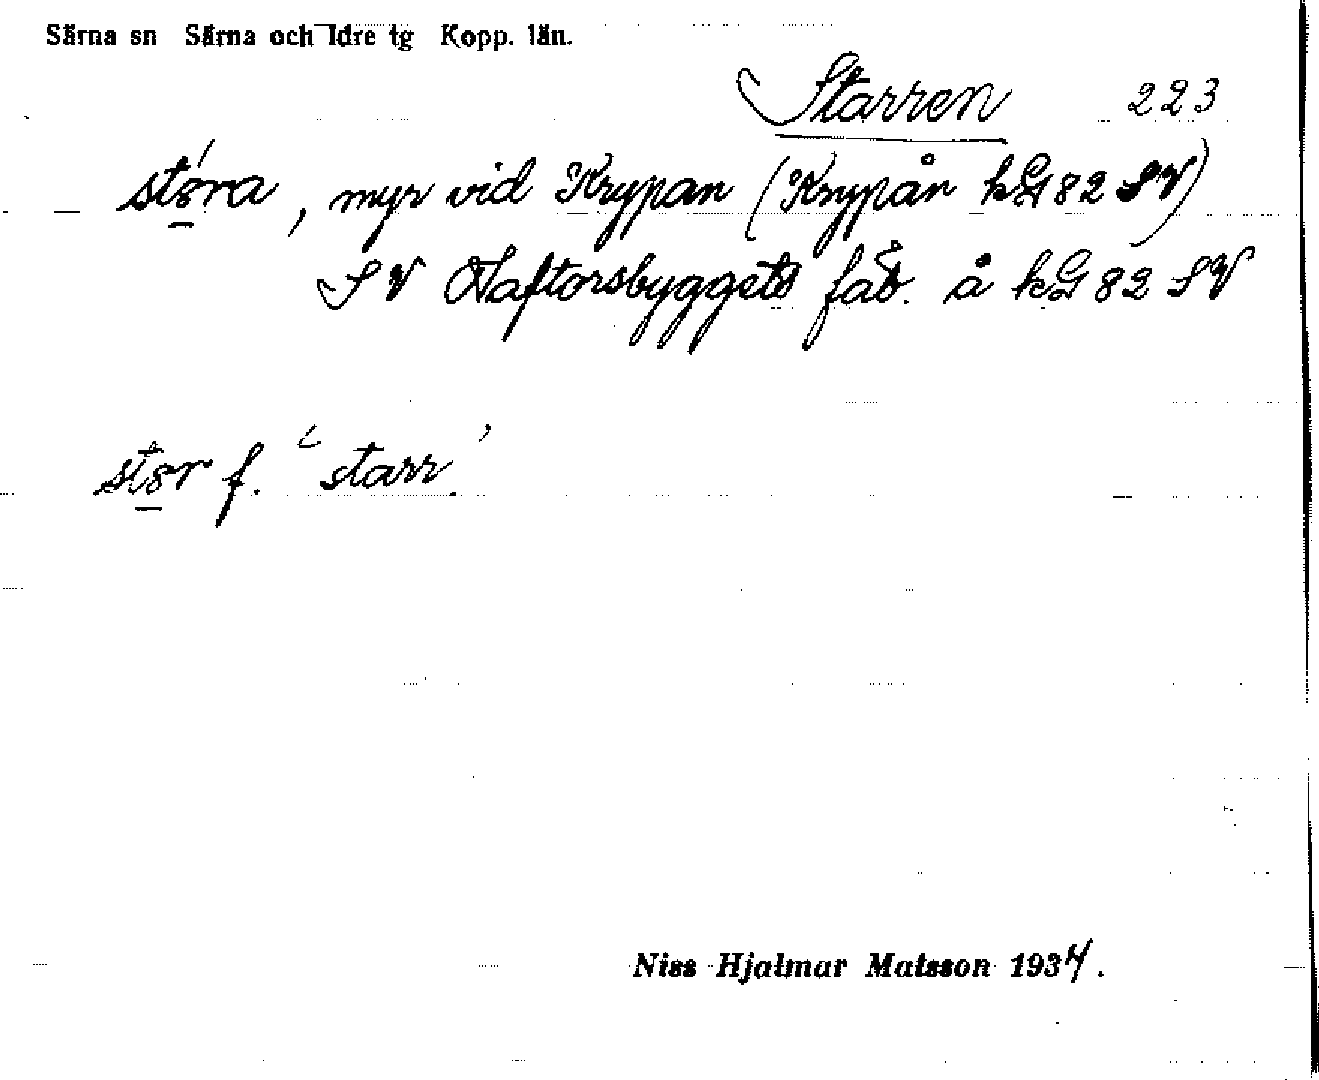 Särna sn Särna och Idre tg Kopp. län.
Starren 223
støra, myr vid Krypan (Krypån kG 82 SV)
SV Naftorsbyggets fäb. å kG 82 SV
stør f. ‘starr.’
Niss Hjalmar Matsson 1934.